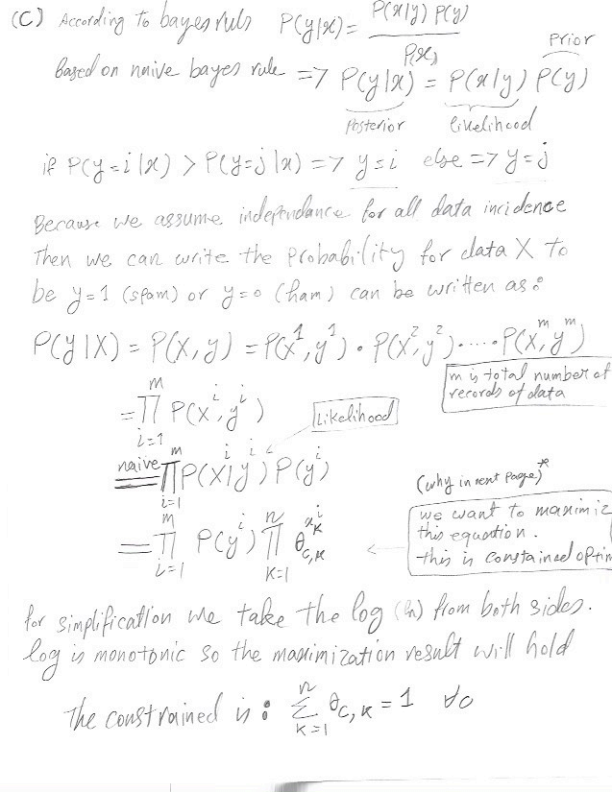 (C) According to bayes ruls P(y|x) = P(x|y) P(y) / P(x)
Prior
Based on naive bayes rule => P(y|x) = P(x|y) P(y)
Posterior likelihood
if P(y=i|x) > P(y=j|x) => y=i else => y=j
Because we assume indeptndance for all data incidence
Then we can write the Probability for data X to
be y=1 (spam) or y=0 (ham) can be written as:
P(y|X) = P(X,y) = P(x^1,y^1) · P(x^2,y^2) ····· P(x^m,y^m)
m is total number of
records of data
= ∏_{i=1}^{m} P(x^i,y^i)
Likelihood
naive = ∏_{i=1}^{m} P(x^i|y^i) P(y^i)
(why in next Page)*
= ∏_{i=1}^{m} P(y^i) ∏_{K=1}^{n} θ_{c,K}^{x_K^i}
we want to maximiz
this equation.
this is constained optim
for simplification we take the log (ln) from both sides.
log is monotonic so the maximization result will hold
The constrained is: ∑_{K=1}^{n} θ_{c,K} = 1 ∀c